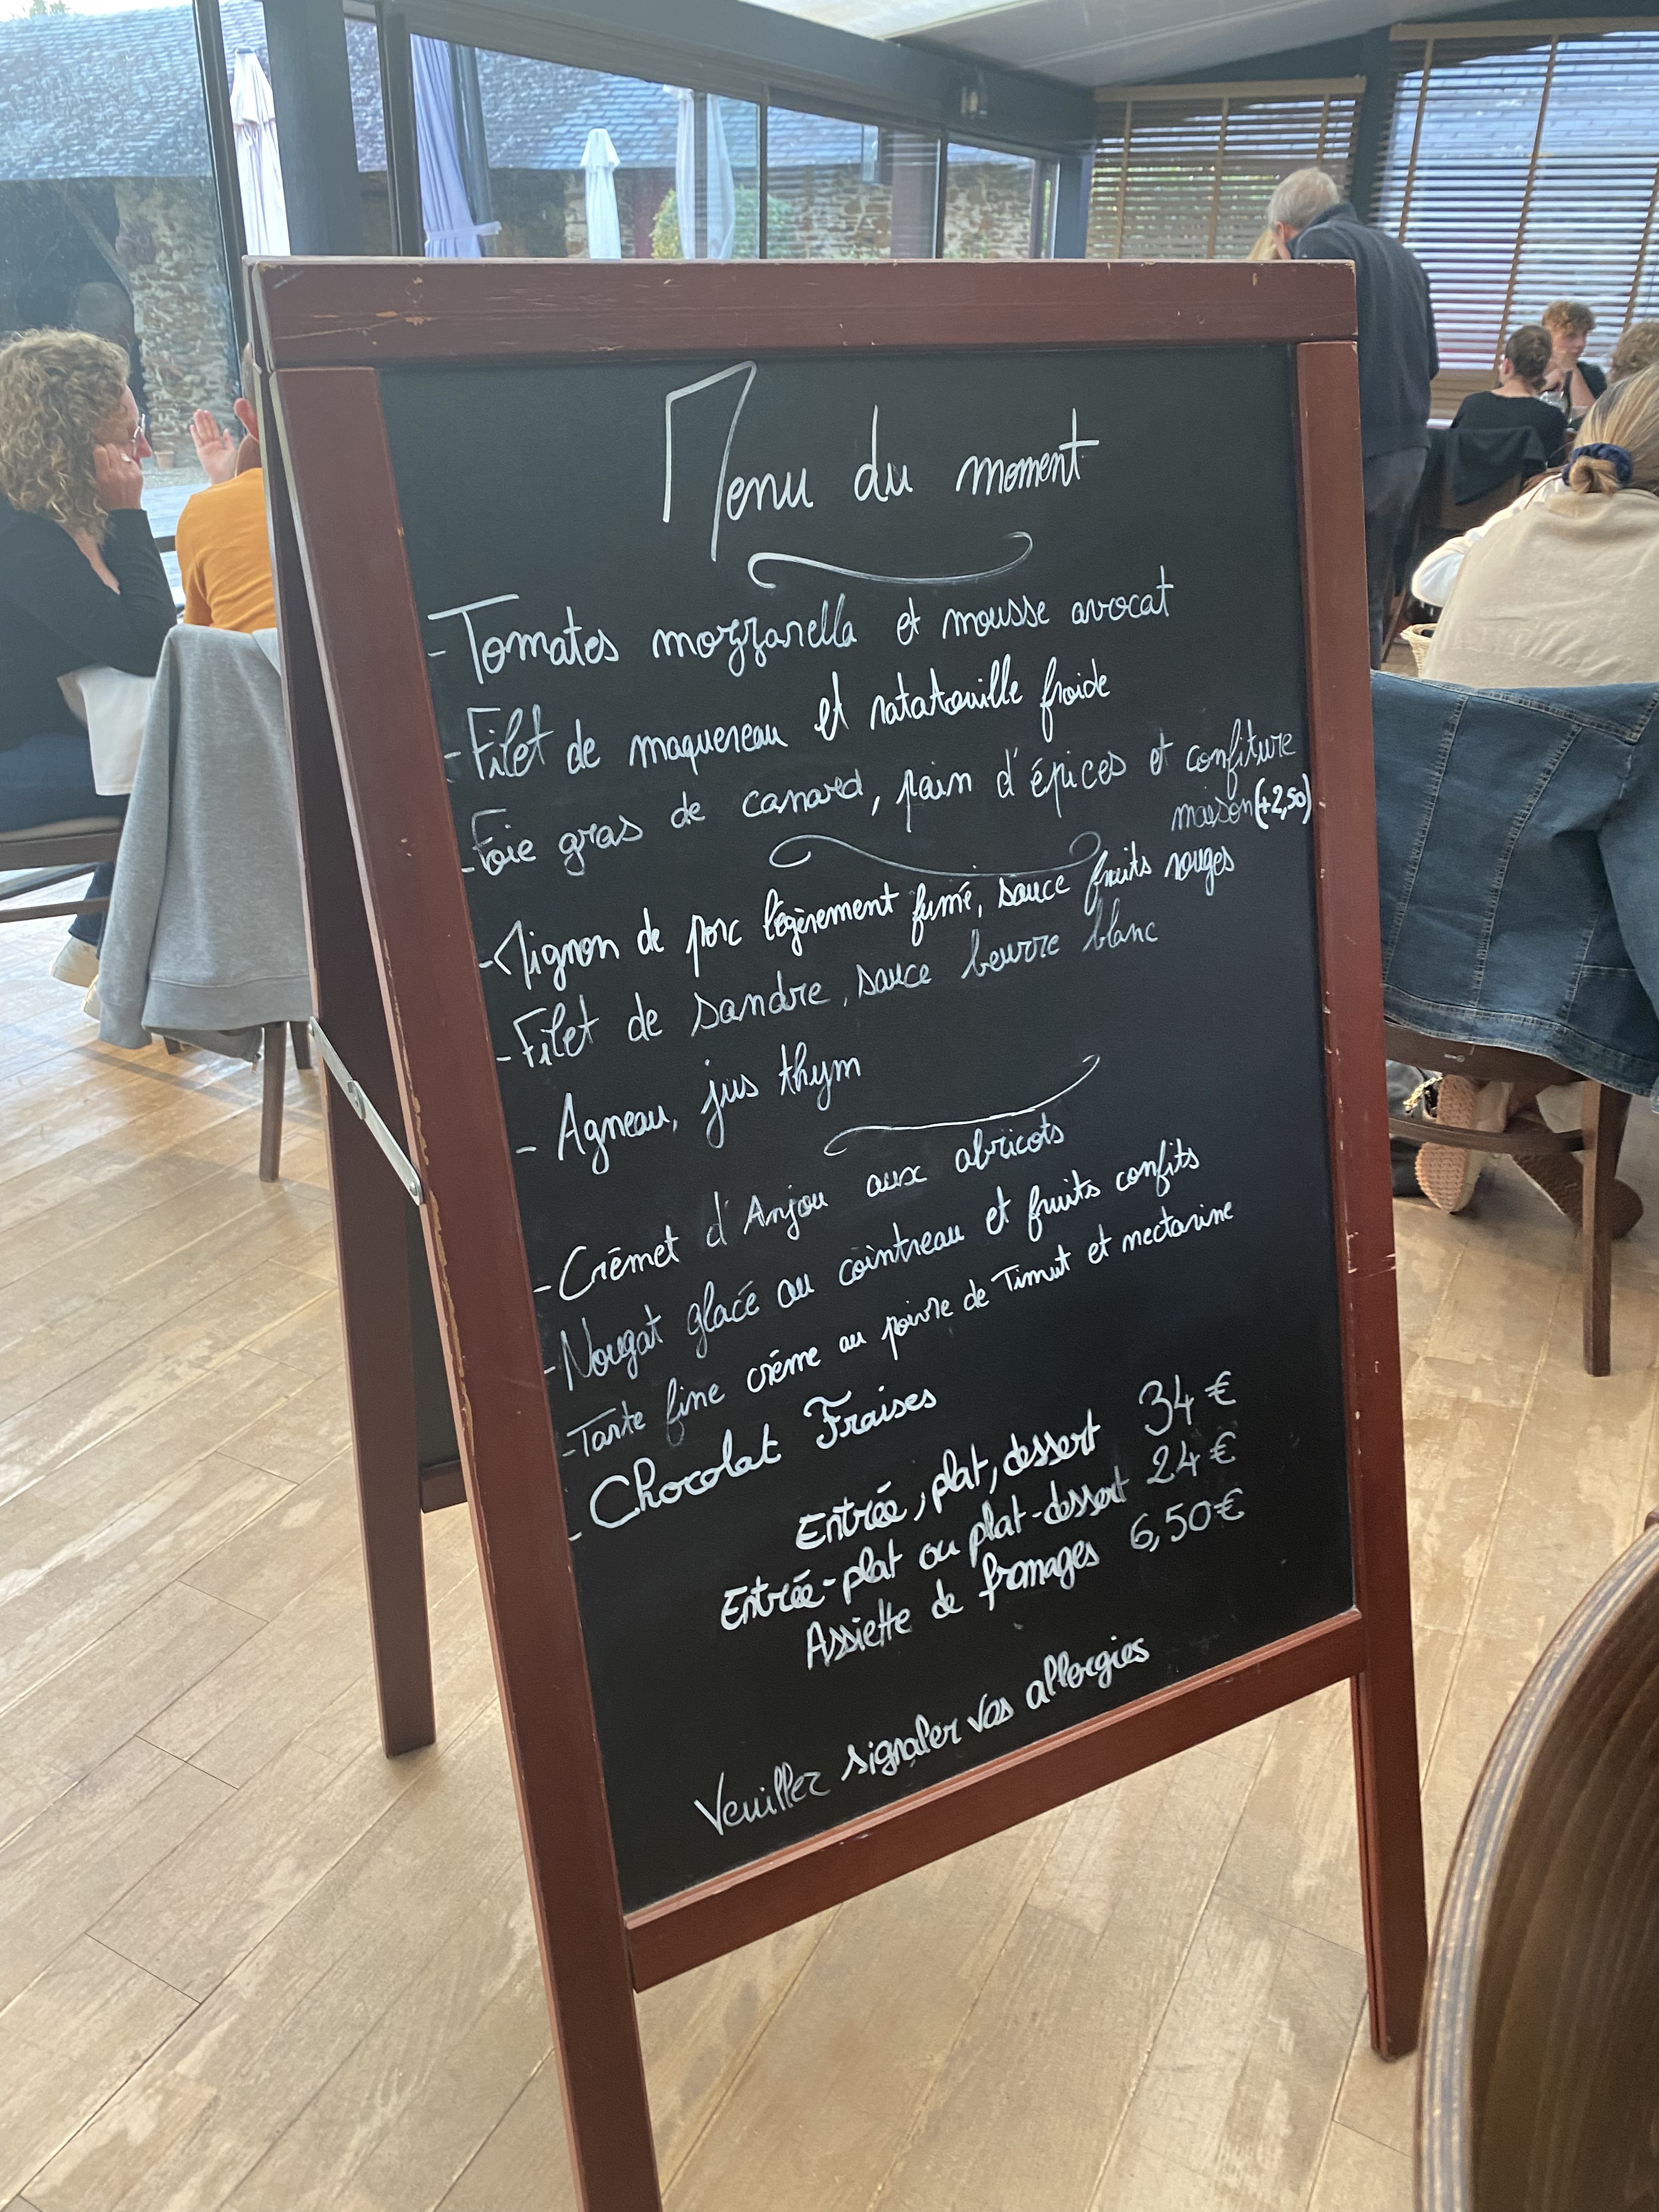 Menu du moment
- Tomates mozzarella et mousse avocat
- Filet de maquereau et ratatouille froide
- Foie gras de canard, pain d'épices et confiture
maison (+2,50)
- Mignon de porc légèrement fumé, sauce fruits rouges
- Filet de sandre, sauce beurre blanc
- Agneau, jus thym
- Crémet d'Anjou aux abricots
- Nougat glacé au cointreau et fruits confits
- Tarte fine crème au poivre de Timut et nectarine
- Chocolat Fraises
Entrée, plat, dessert 34 €
Entrée-plat ou plat-dessert 24 €
Assiette de fromages 6,50 €
Veuiller signaler vos allergies